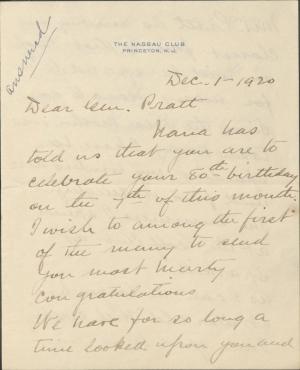 answered
THE NASSAU CLUB
PRINCETON, N.J.
Dec. 1- 1920
Dear Gen. Pratt
Nana has
told us that you are to
celebrate your 80th birthday
on the 7th of this month.
I wish to among the first
of the many to send
you most hearty
congratulations
We have for so long a
time looked upon you and